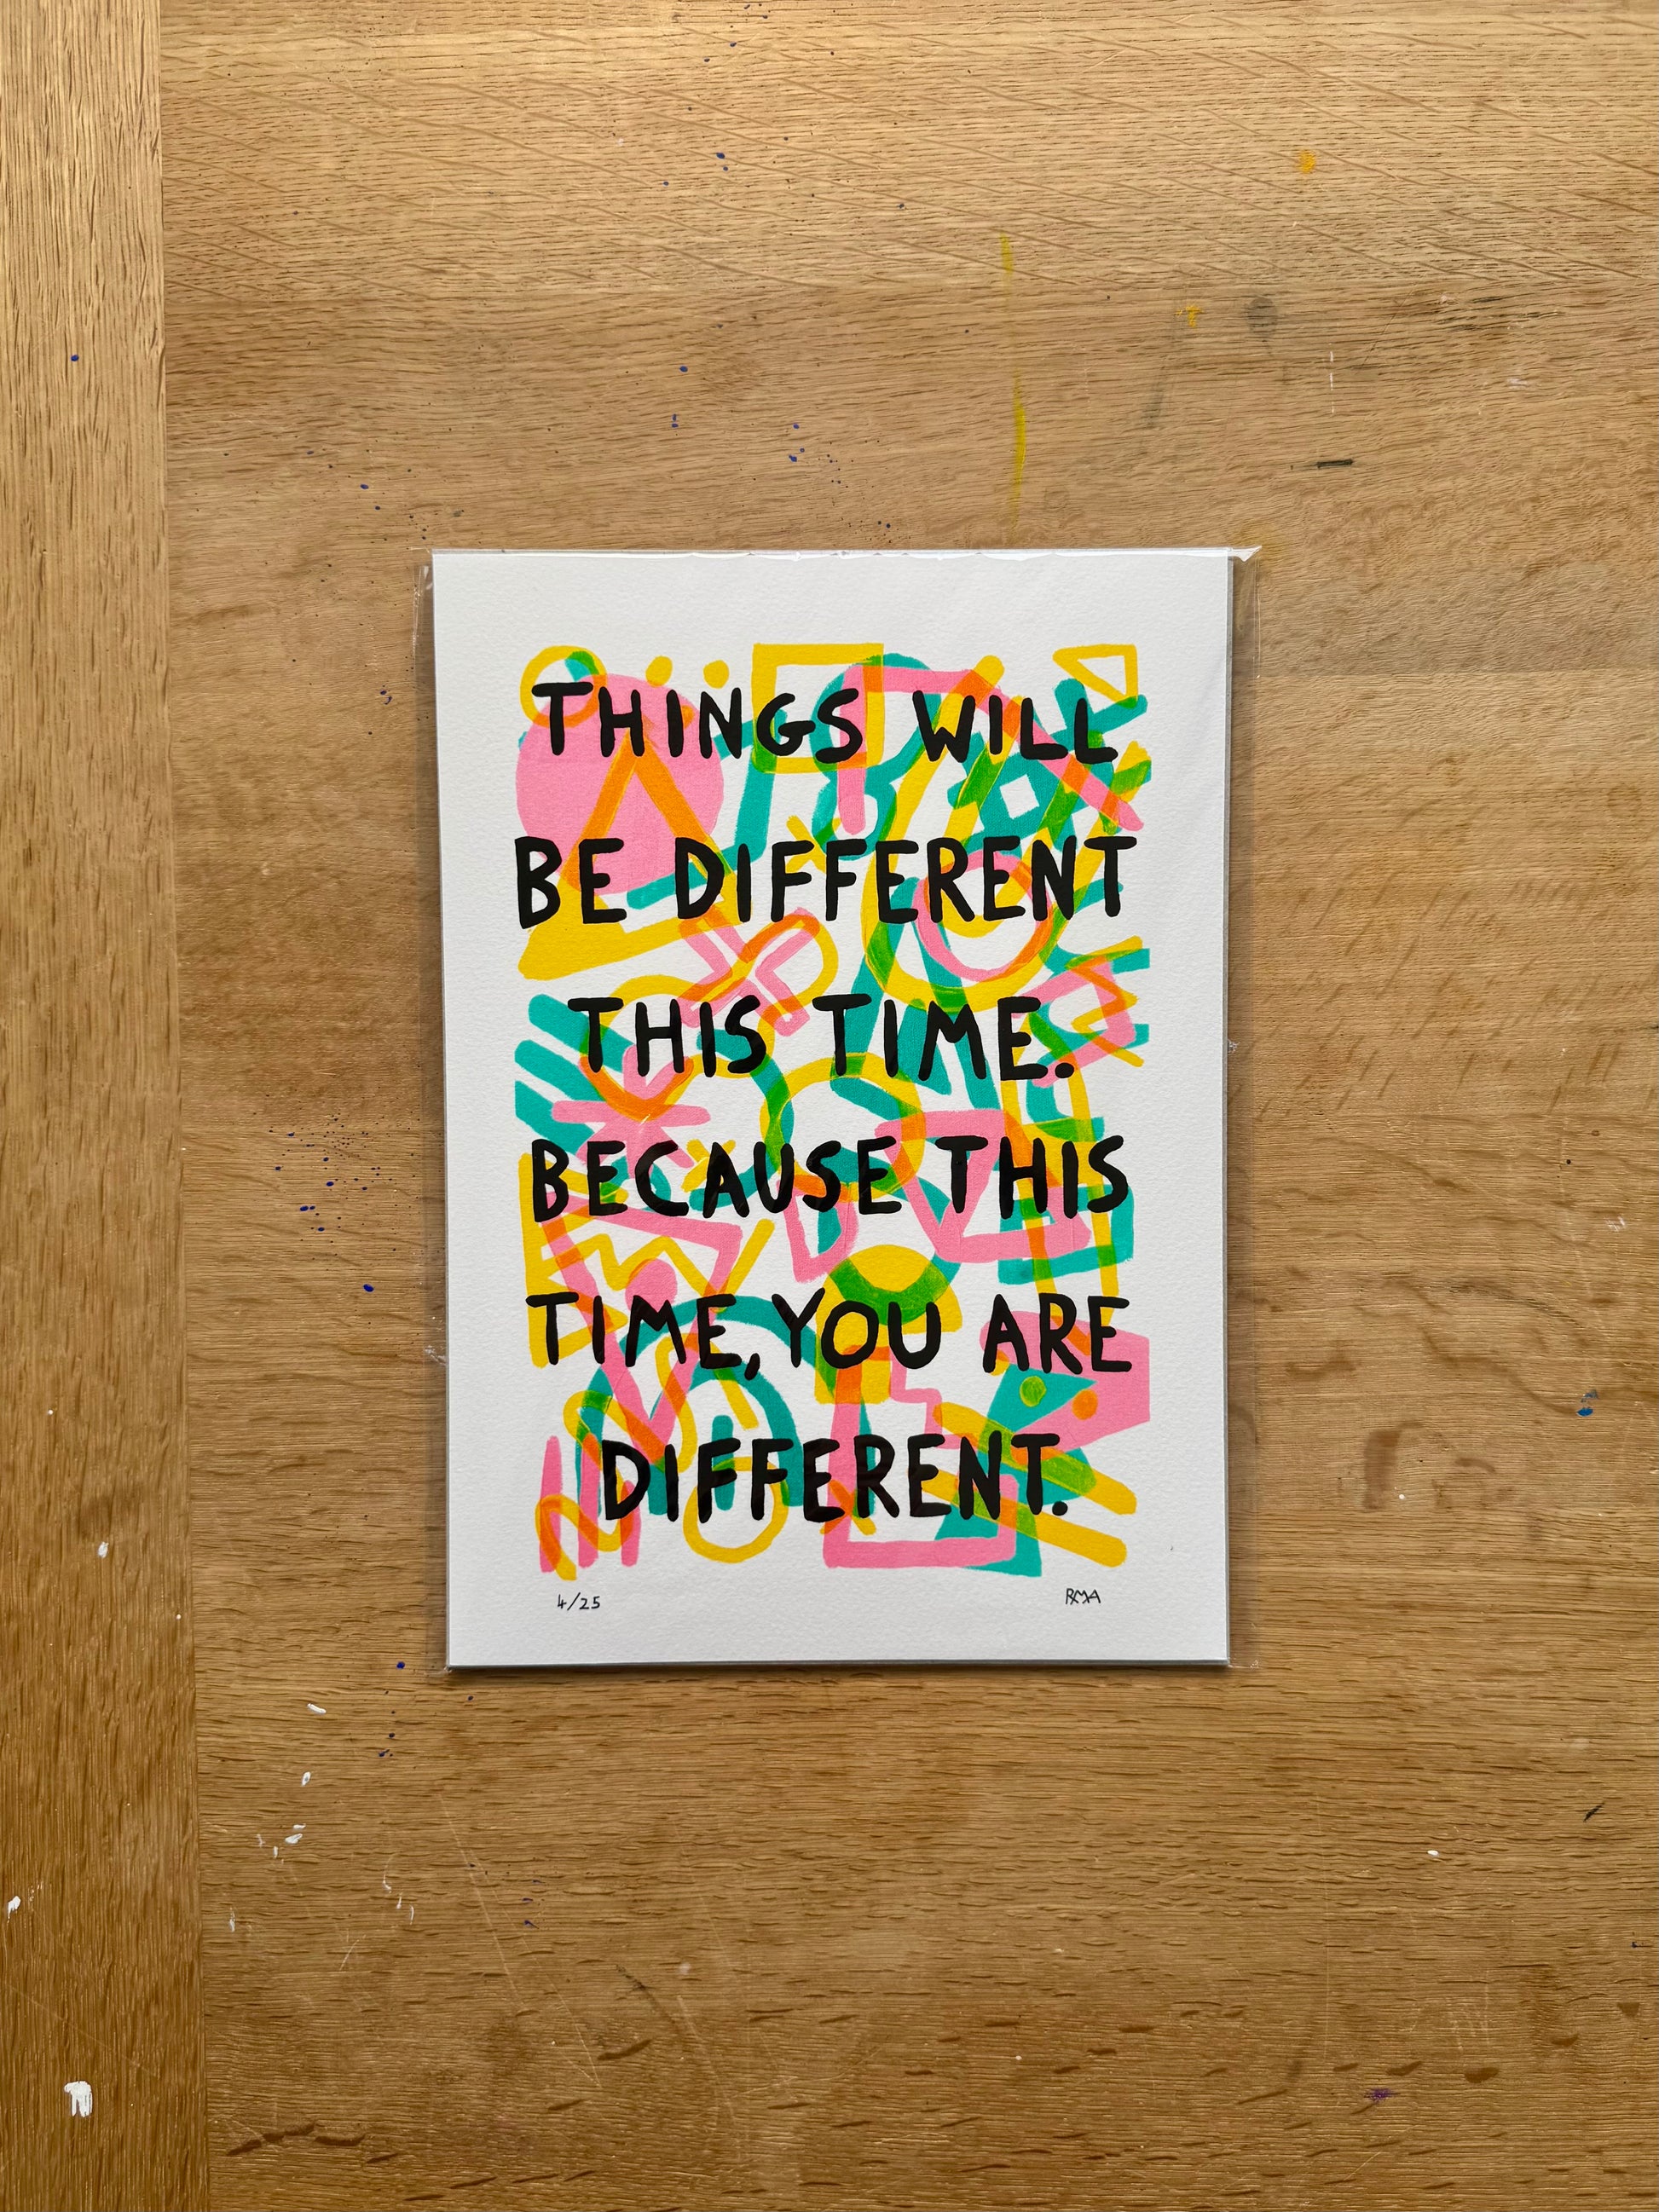 THINGS WILL
BE DIFFERENT
THIS TIME.
BECAUSE THIS
TIME, YOU ARE
DIFFERENT.
4/25
RMA